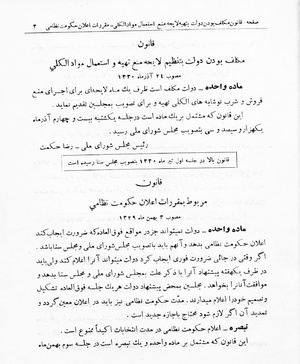 صفحه قانون مکلف بودن دولت بتهیه لایحه منع استعمال مواد الکلی ـ مقررات اعلان حکومت نظامی ۳
قانون
مکلف بودن دولت بتنظیم لایحه منع تهیه و استعمال مواد الکلی
مصوب ۲۴ آذرماه ۱۳۳۰
ماده واحده ـ دولت مکلف است ظرف یک ماه لایحه‌ای برای اجرای منع
فروش و شرب نوشابه های الکلی تهیه و برای تصویب بمجلسین تقدیم نماید.
این قانون که مشتمل بر یک ماده است در جلسه یکشنبه بیست و چهارم آذرماه
یکهزار و سیصد و سی بتصویب مجلس شورای ملی رسید.
رئیس مجلس شورای ملی ـ رضا حکمت
قانون بالا در جلسه اول تیر ماه ۱۳۳۰ بتصویب مجلس سنا رسیده است
قانون
مربوط بمقررات اعلان حکومت نظامی
مصوب ۳ بهمن ماه ۱۳۲۹
ماده واحده ـ دولت نمیتواند جز در مواقع فوق العاده که ضرورت ایجاب کند
اعلان حکومت نظامی بدهد و آنهم باید با تصویب مجلس شورای ملی و مجلس سنا باشد.
اگر وقتی در جائی ضرورت فوری ایجاب کرد دولت میتواند آنرا اعلام کند ولی باید
در ظرف یکهفته پیشنهاد آنرا با ذکر علت بمجلس شورای ملی و مجلس سنا بدهد و
موافقت آنانرا بخواهد. مجلسین بمحض پیشنهاد دولت هر یک جلسه فوق العاده تشکیل
و تصمیم خود را اعلام میدارند. مدت حکومت نظامی نیز باید در اعلان معین گردد و
تمدید آن اگر لازم شود محتاج باجازه جدید است.
تبصره ـ اعلام حکومت نظامی در مدت انتخابات اکیداً ممنوع است.
این قانون که مشتمل بر ماده واحده و یک تبصره است در جلسه سوم بهمن ماه